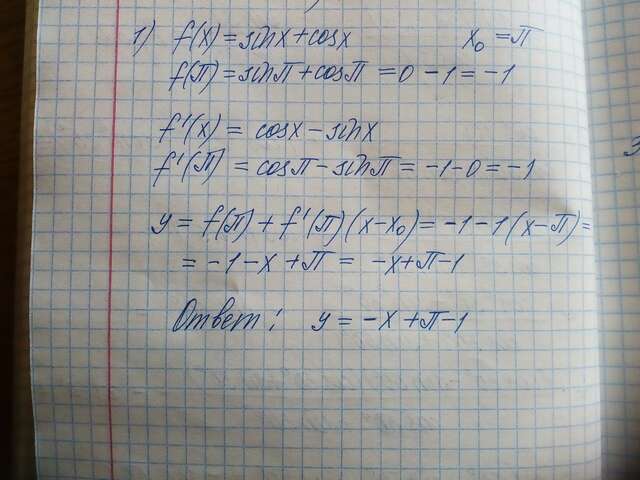 1) f(x) = sinx + cosx x₀ = π
f(π) = sinπ + cosπ = 0 - 1 = -1
f'(x) = cosx - sinx
f'(π) = cosπ - sinπ = -1 - 0 = -1
y = f(π) + f'(π)(x-x₀) = -1 - 1(x-π) =
= -1 - x + π = -x + π - 1
Ответ: y = -x + π - 1
3